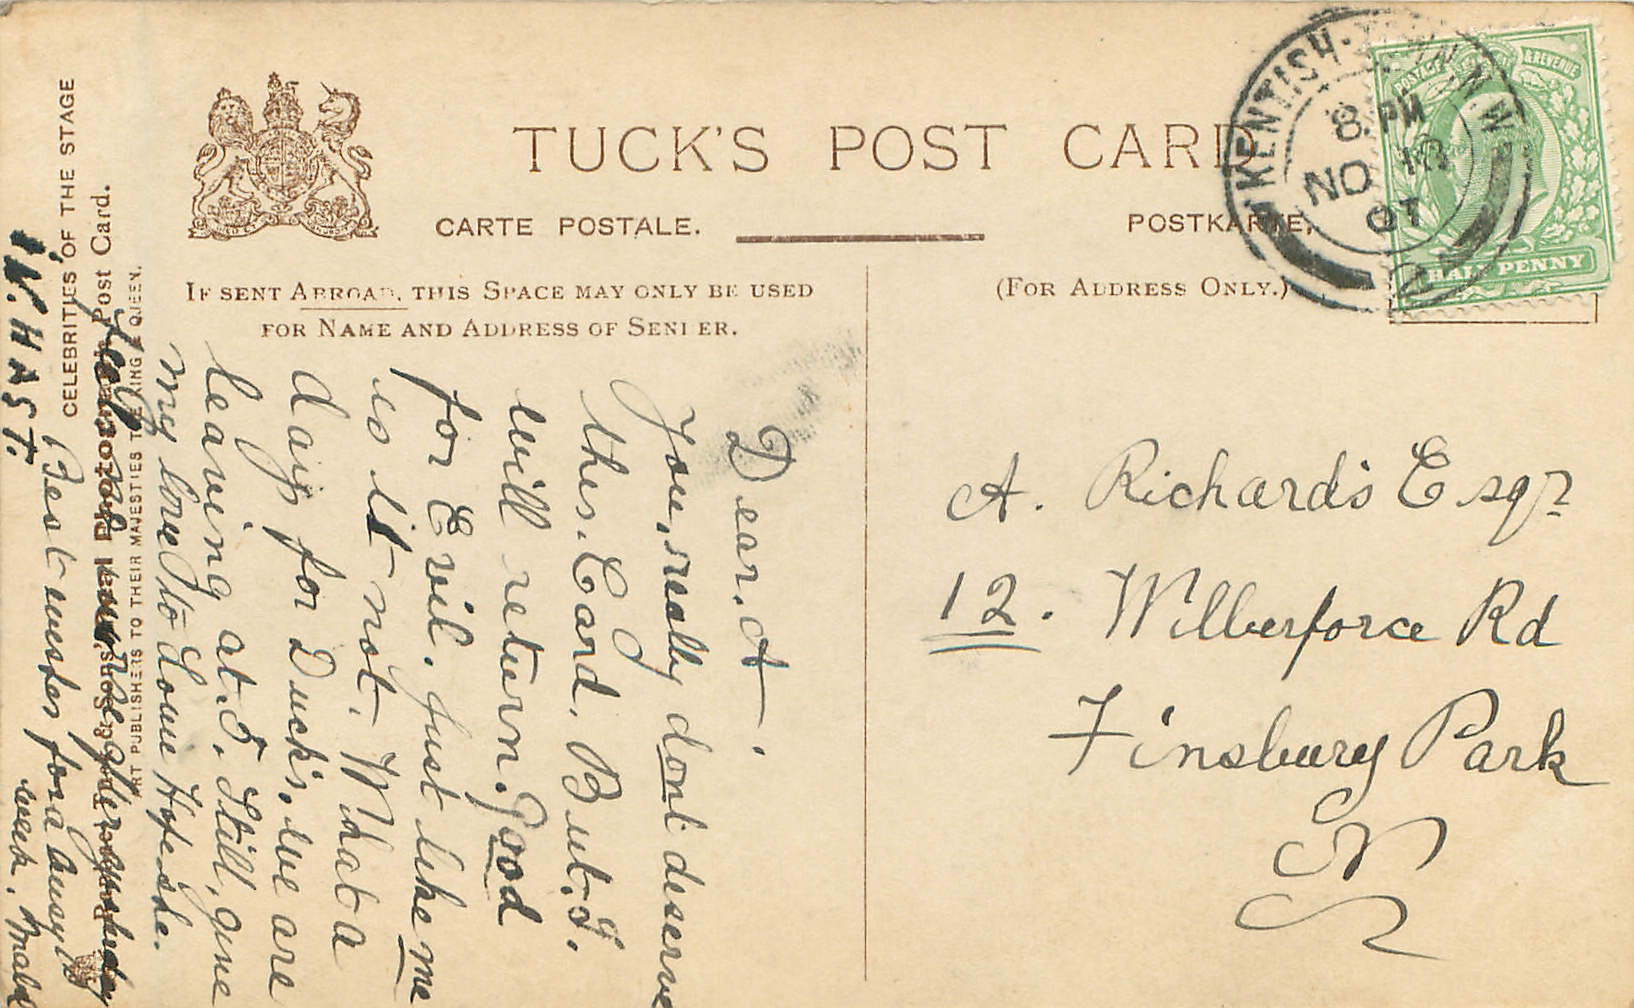 TUCK'S POST CARD
CARTE POSTALE.
POSTKARTE,
IF SENT ABROAD, THIS SPACE MAY ONLY BE USED
FOR NAME AND ADDRESS OF SENDER.
(FOR ADDRESS ONLY.)
KENTISH-TOWN N.W
8. PM
NO 18
07
POSTAGE & REVENUE
HALF PENNY
A. Richards Esqr
12. Wilberforce Rd
Finsbury Park
N
Dear. A.
You, really don't deserve
this. Card. But. I.
will return. Good
for Evil. Just like me
is it not. What a
day for Duck's. we are
leaving at. 5. Still, give
my love to Louie Hope she
Best wishes for a busy
week. Mabel
IN. HAST.
CELEBRITIES OF THE STAGE
Post Card.
ART PUBLISHERS TO THEIR MAJESTIES THE KING & QUEEN.